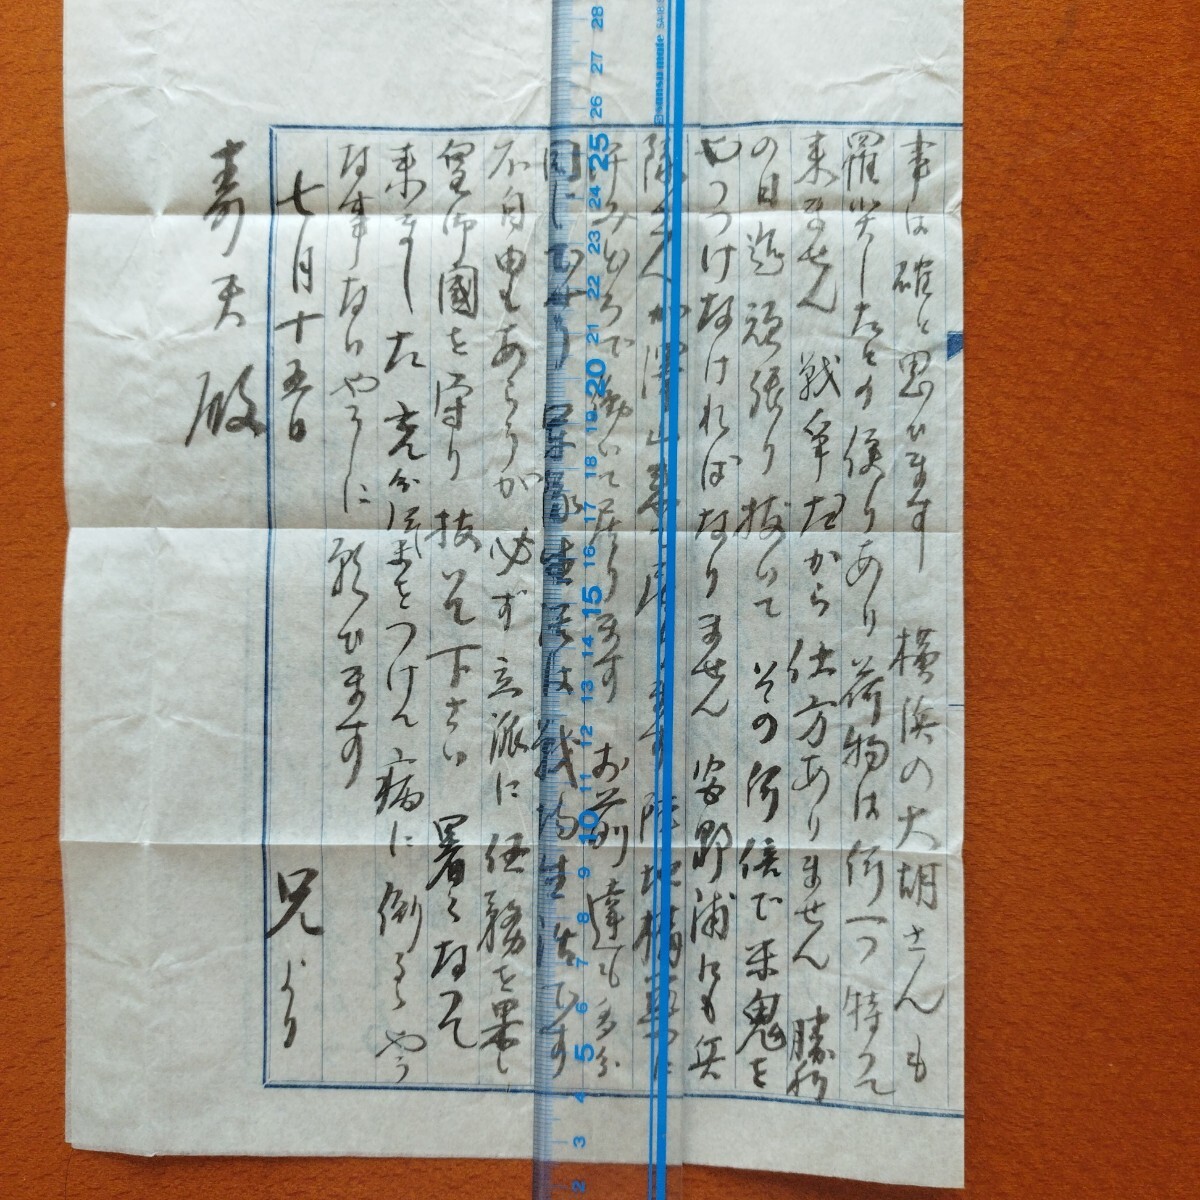 事は確と思ひます 横浜の大胡さんも
罹災したとの便りあり荷物は何一つ持つて
来ません 戦争だから仕方ありません 勝利
の日迄頑張り抜いて その何倍で米鬼を
やつつけなければなりません 安野浦にも兵
隊さんが沢山来て居ります 陸地構築に
汗みどろで働いて居ります お前達も多分
同じでせう 軍隊生活は戦場生活です
不自由もあらうが必ず立派に任務を果し
皇御國を守り抜いて下さい 暑くなつて
来ました 充分気をつけて病に倒るゝやう
な事ないやうに願ひます
七月十五日 兄より
寿天殿
Sansumate
28
27
26
25
24
23
22
21
20
19
18
17
16
15
14
13
12
11
10
9
8
7
6
5
4
3
2